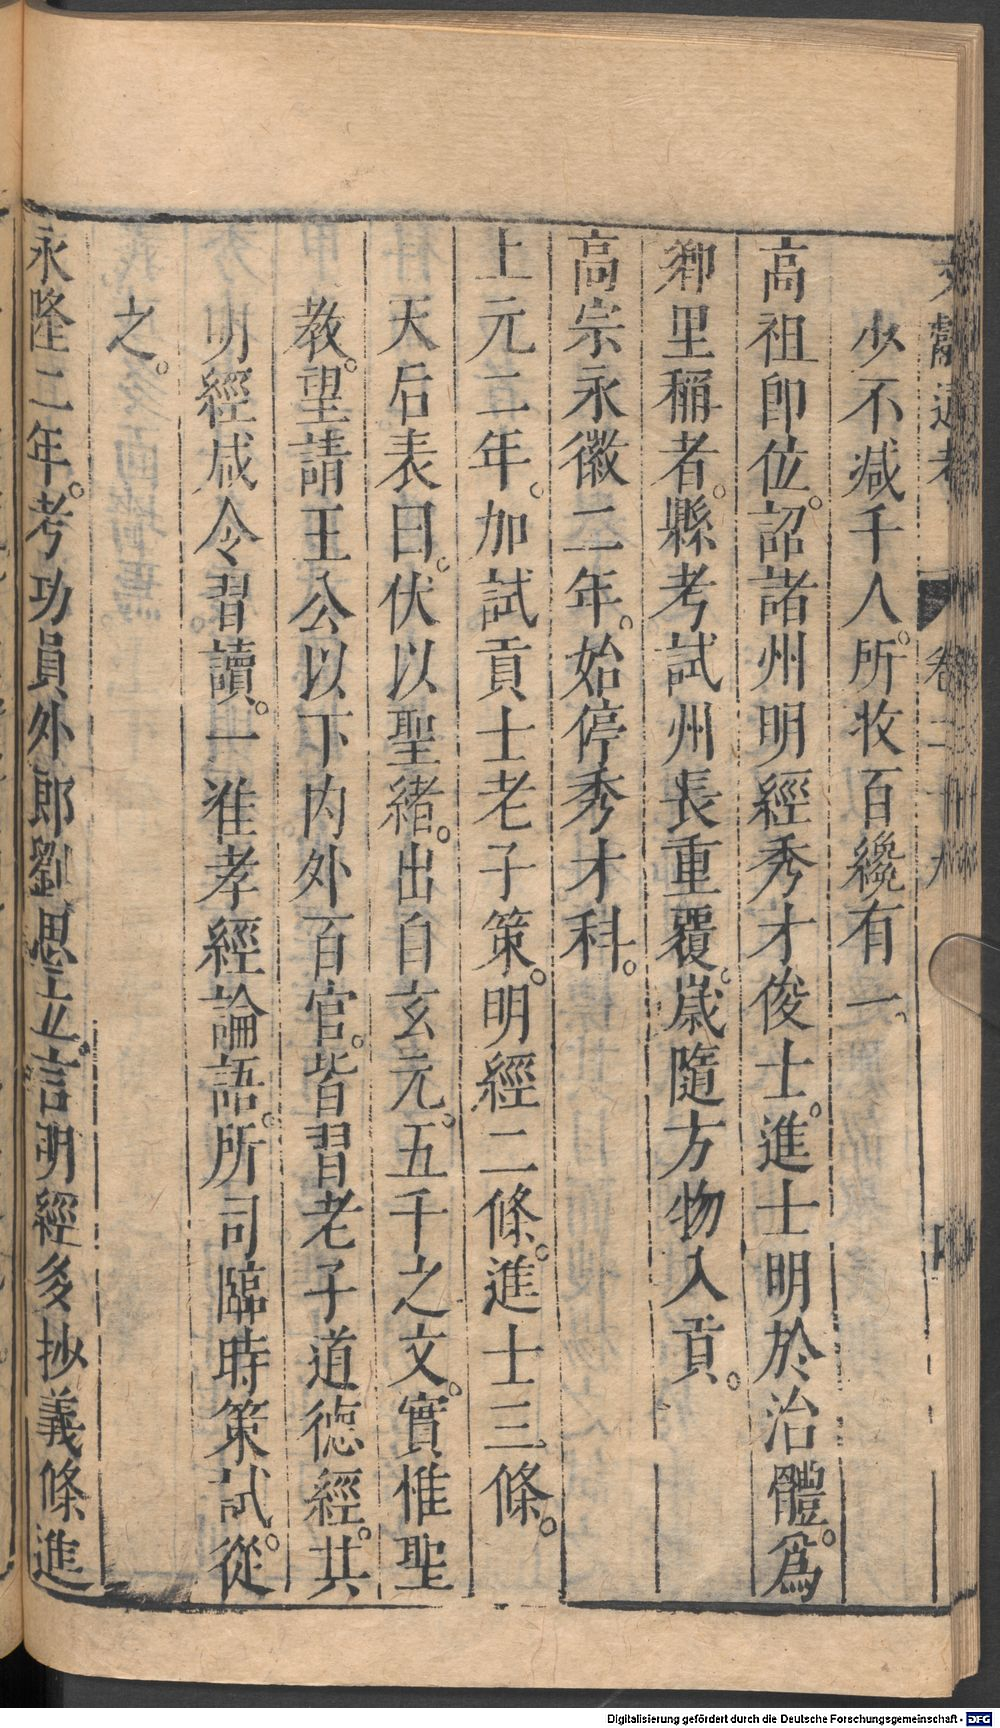 少不減千人。所收百纔有一。
高祖即位。詔諸州明經秀才俊士。進士明於治體。爲
鄉里稱者。縣考試州長重覆。歲隨方物入貢。
高宗永徽二年。始停秀才科。
上元二年。加試貢士老子策。明經二條。進士三條。
天后表曰。伏以聖緒。出自玄元。五千之文。實惟聖
教。望請王公以下內外百官。皆習老子道德經。其
明經咸令習讀。一准孝經論語。所司臨時策試。從
之。
永隆二年。考功員外郎劉思立。言明經多抄義條進
Digitalisierung gefördert durch die Deutsche Forschungsgemeinschaft - DFG